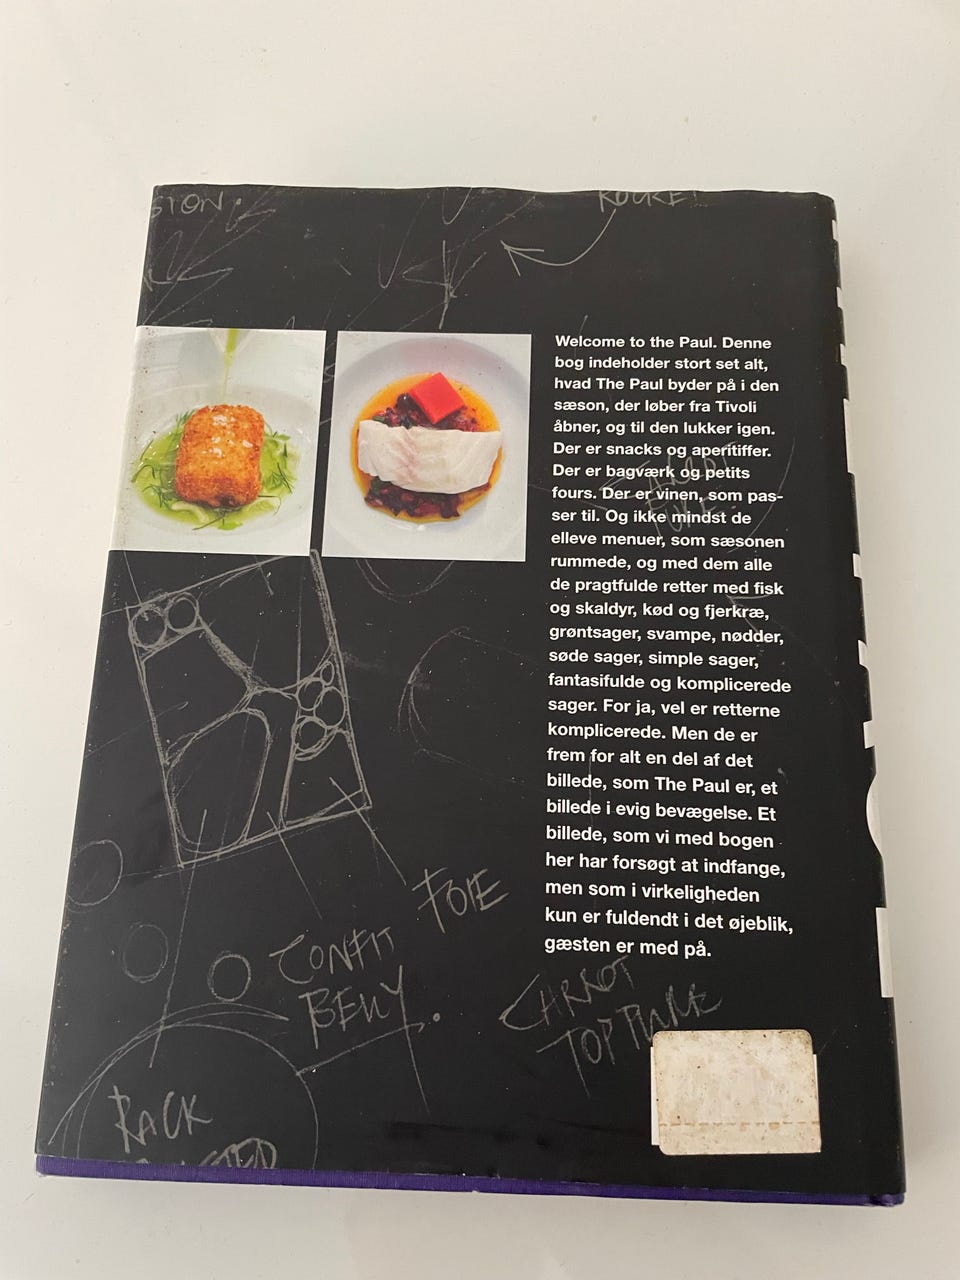 SION.
ROCKET
Welcome to the Paul. Denne
bog indeholder stort set alt,
hvad The Paul byder på i den
sæson, der løber fra Tivoli
åbner, og til den lukker igen.
Der er snacks og aperitiffer.
Der er bagværk og petits
fours. Der er vinen, som pas-
ser til. Og ikke mindst de
elleve menuer, som sæsonen
rummede, og med dem alle
de pragtfulde retter med fisk
og skaldyr, kød og fjerkræ,
grøntsager, svampe, nødder,
søde sager, simple sager,
fantasifulde og komplicerede
sager. For ja, vel er retterne
komplicerede. Men de er
frem for alt en del af det
billede, som The Paul er, et
billede i evig bevægelse. Et
billede, som vi med bogen
her har forsøgt at indfange,
men som i virkeligheden
kun er fuldendt i det øjeblik,
gæsten er med på.
CARROT
FOIE
CONFIT
BELLY.
CARROT
TOP
RACK